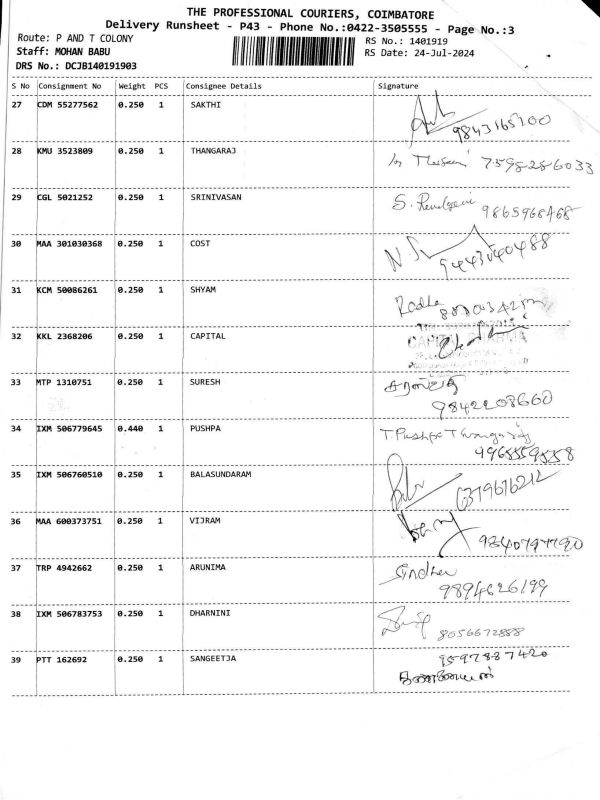 THE PROFESSIONAL COURIERS, COIMBATORE
Delivery Runsheet - P43 - Phone No.:0422-3505555 - Page No.:3
Route: P AND T COLONY
RS No.: 1401919
Staff: MOHAN BABU
RS Date: 24-Jul-2024
DRS No.: DCJB140191903
S No Consignment No Weight PCS Consignee Details Signature
27 CDM 55277562 0.250 1 SAKTHI
9843165200
28 KMU 3523809 0.250 1 THANGARAJ
7598286033
29 CGL 5021252 0.250 1 SRINIVASAN
9865968468
30 MAA 301030368 0.250 1 COST
9443040488
31 KCM 50086261 0.250 1 SHYAM
Radha
32 KKL 2368206 0.250 1 CAPITAL
33 MTP 1310751 0.250 1 SURESH
9842208660
34 IXM 506779645 0.440 1 PUSHPA T. Pushpa Thangaraj
9965559558
35 IXM 506760510 0.250 1 BALASUNDARAM
6379676212
36 MAA 600373751 0.250 1 VIJRAM
37 TRP 4942662 0.250 1 ARUNIMA
9894626199
38 IXM 506783753 0.250 1 DHARNINI
8056672888
39 PTT 162692 0.250 1 SANGEETJA 9597887420